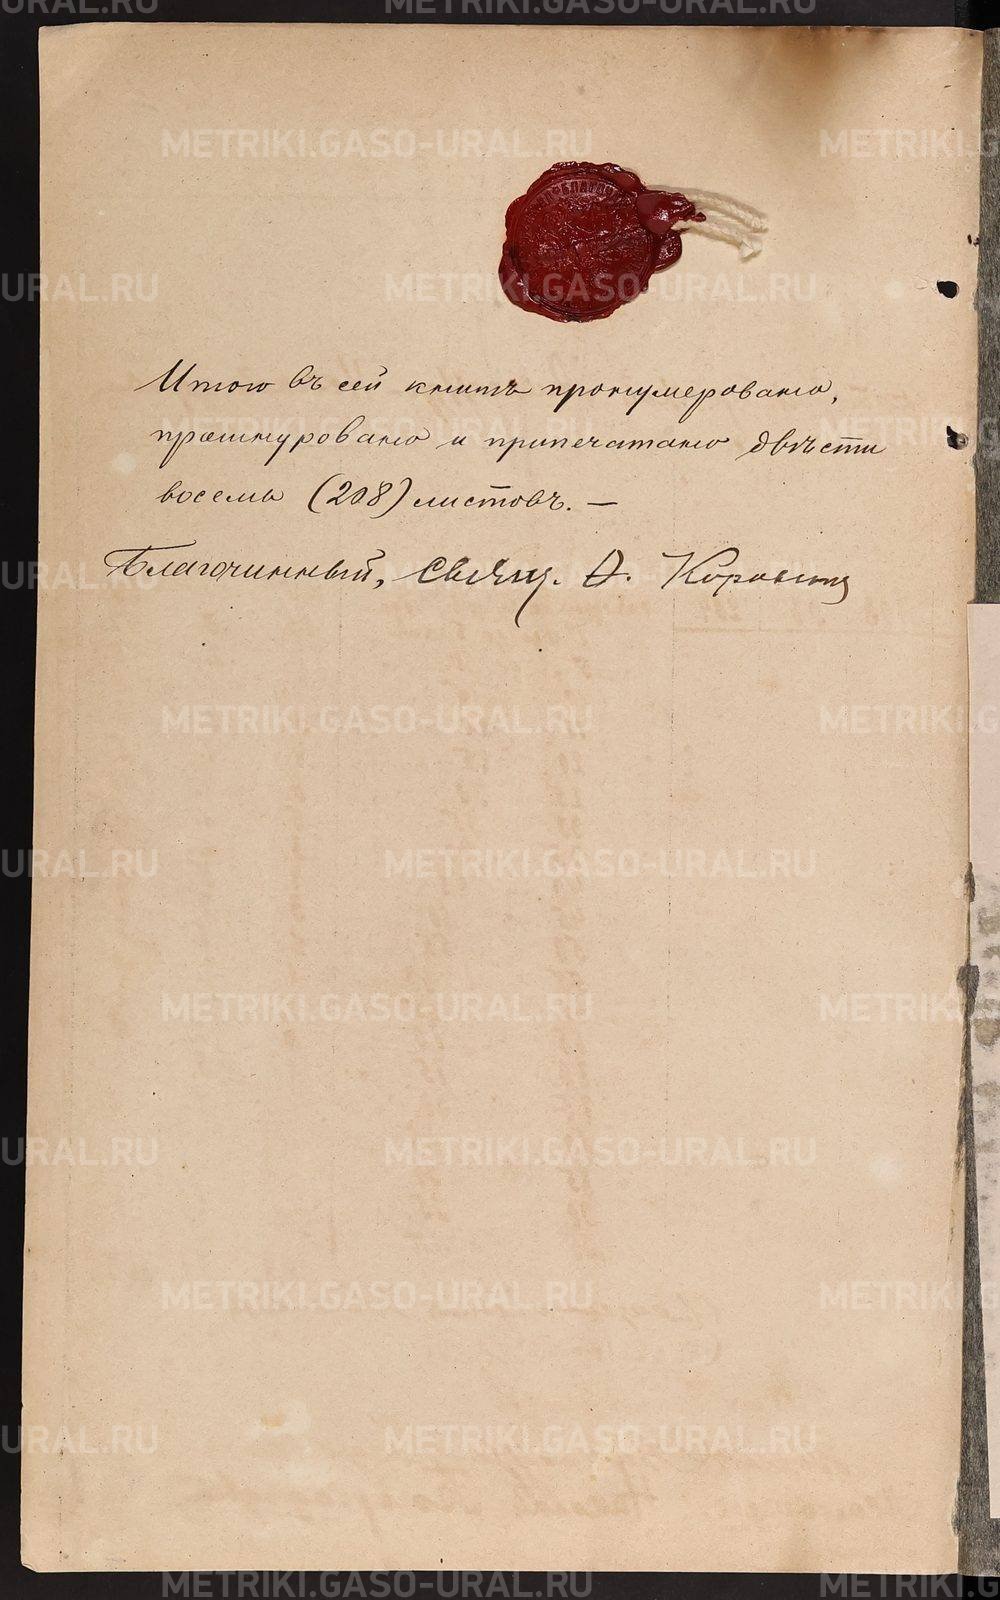 Итого въ сей книгѣ пронумеровано,
прошнуровано и припечатано двѣсти
восемь (208) листовъ. —
Благочинный, Свящ. А. Коровинъ
METRIKI.GASO-URAL.RU